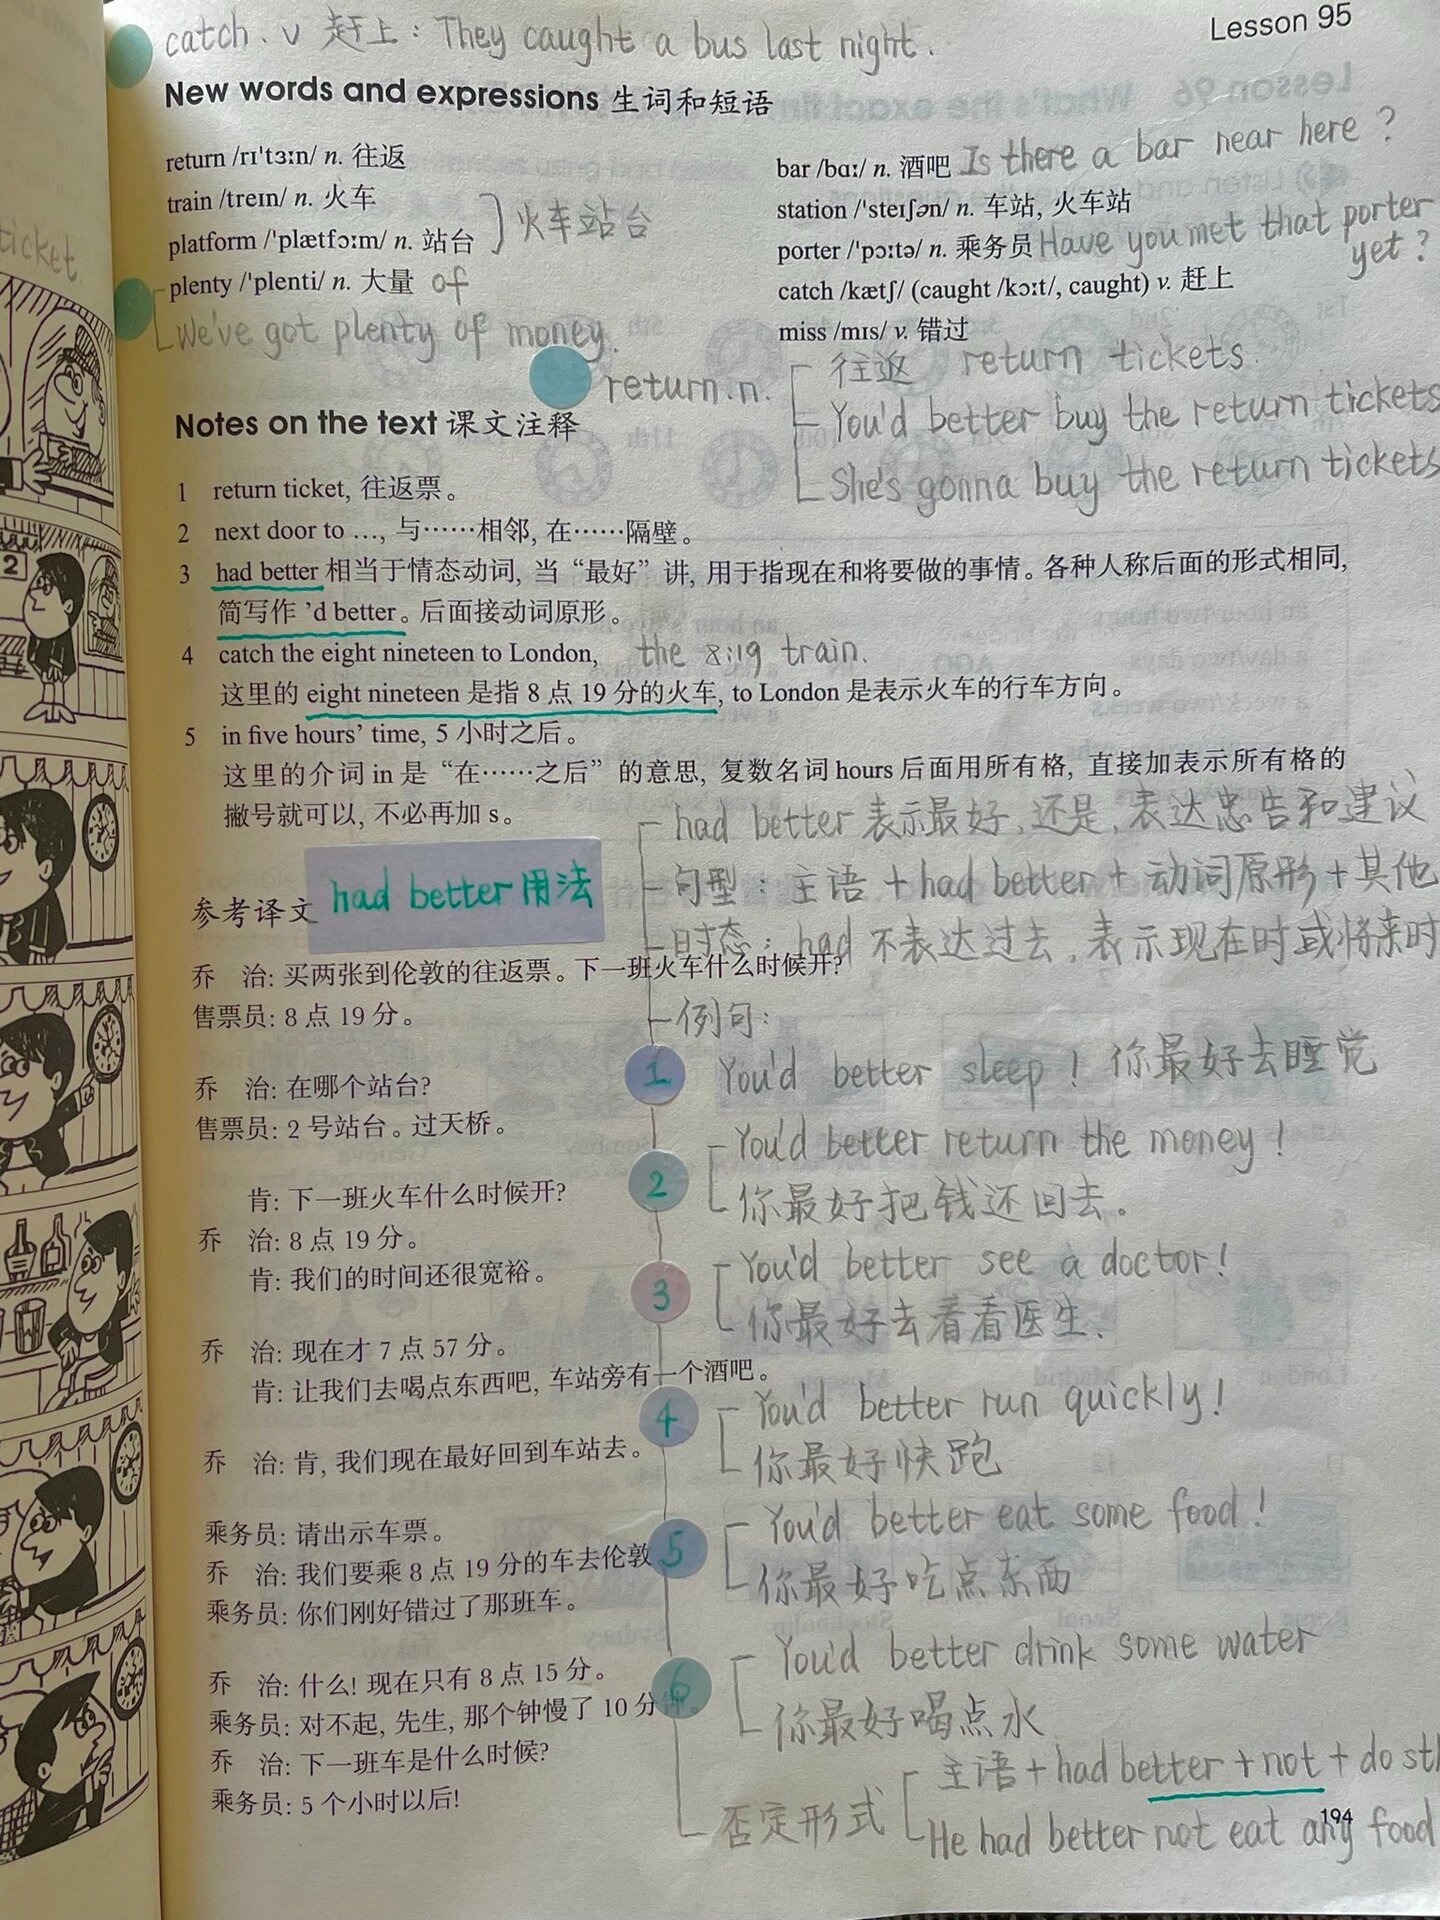 catch. v 赶上: They caught a bus last night.
Lesson 95
New words and expressions 生词和短语
return /rɪˈtɜːn/ n. 往返
train /treɪn/ n. 火车
platform /ˈplætfɔːm/ n. 站台
火车站台
plenty /ˈplenti/ n. 大量 of
We've got plenty of money.
bar /bɑː/ n. 酒吧 Is there a bar near here ?
station /ˈsteɪʃən/ n. 车站, 火车站
porter /ˈpɔːtə/ n. 乘务员 Have you met that porter
yet ?
catch /kætʃ/ (caught /kɔːt/, caught) v. 赶上
miss /mɪs/ v. 错过
return.n.
往返 return tickets.
You'd better buy the return tickets
She's gonna buy the return tickets
Notes on the text 课文注释
1 return ticket, 往返票。
2 next door to …, 与……相邻, 在……隔壁。
3 had better 相当于情态动词, 当“最好”讲, 用于指现在和将要做的事情。各种人称后面的形式相同,
简写作 ’d better。后面接动词原形。
4 catch the eight nineteen to London, the 8:19 train.
这里的 eight nineteen 是指 8 点 19 分的火车, to London 是表示火车的行车方向。
5 in five hours’ time, 5 小时之后。
这里的介词 in 是“在……之后”的意思, 复数名词 hours 后面用所有格, 直接加表示所有格的
撇号就可以, 不必再加 s。
had better 用法
had better 表示最好, 还是, 表达忠告和建议
句型: 主语 + had better + 动词原形 + 其他
时态: had 不表达过去, 表示现在时或将来时
例句:
1 You'd better sleep ! 你最好去睡觉
2 You'd better return the money !
你最好把钱还回去。
3 You'd better see a doctor!
你最好去看看医生.
4 You'd better run quickly!
你最好快跑
5 You'd better eat some food !
你最好吃点东西
6 You'd better drink some water
你最好喝点水
否定形式
主语 + had better + not + do sth
He had better not eat any food
参考译文
乔 治: 买两张到伦敦的往返票。下一班火车什么时候开?
售票员: 8 点 19 分。
乔 治: 在哪个站台?
售票员: 2 号站台。过天桥。
肯: 下一班火车什么时候开?
乔 治: 8 点 19 分。
肯: 我们的时间还很宽裕。
乔 治: 现在才 7 点 57 分。
肯: 让我们去喝点东西吧, 车站旁有一个酒吧。
乔 治: 肯, 我们现在最好回到车站去。
乘务员: 请出示车票。
乔 治: 我们要乘 8 点 19 分的车去伦敦
乘务员: 你们刚好错过了那班车。
乔 治: 什么! 现在只有 8 点 15 分。
乘务员: 对不起, 先生, 那个钟慢了 10 分钟。
乔 治: 下一班车是什么时候?
乘务员: 5 个小时以后!
194
ticket
2